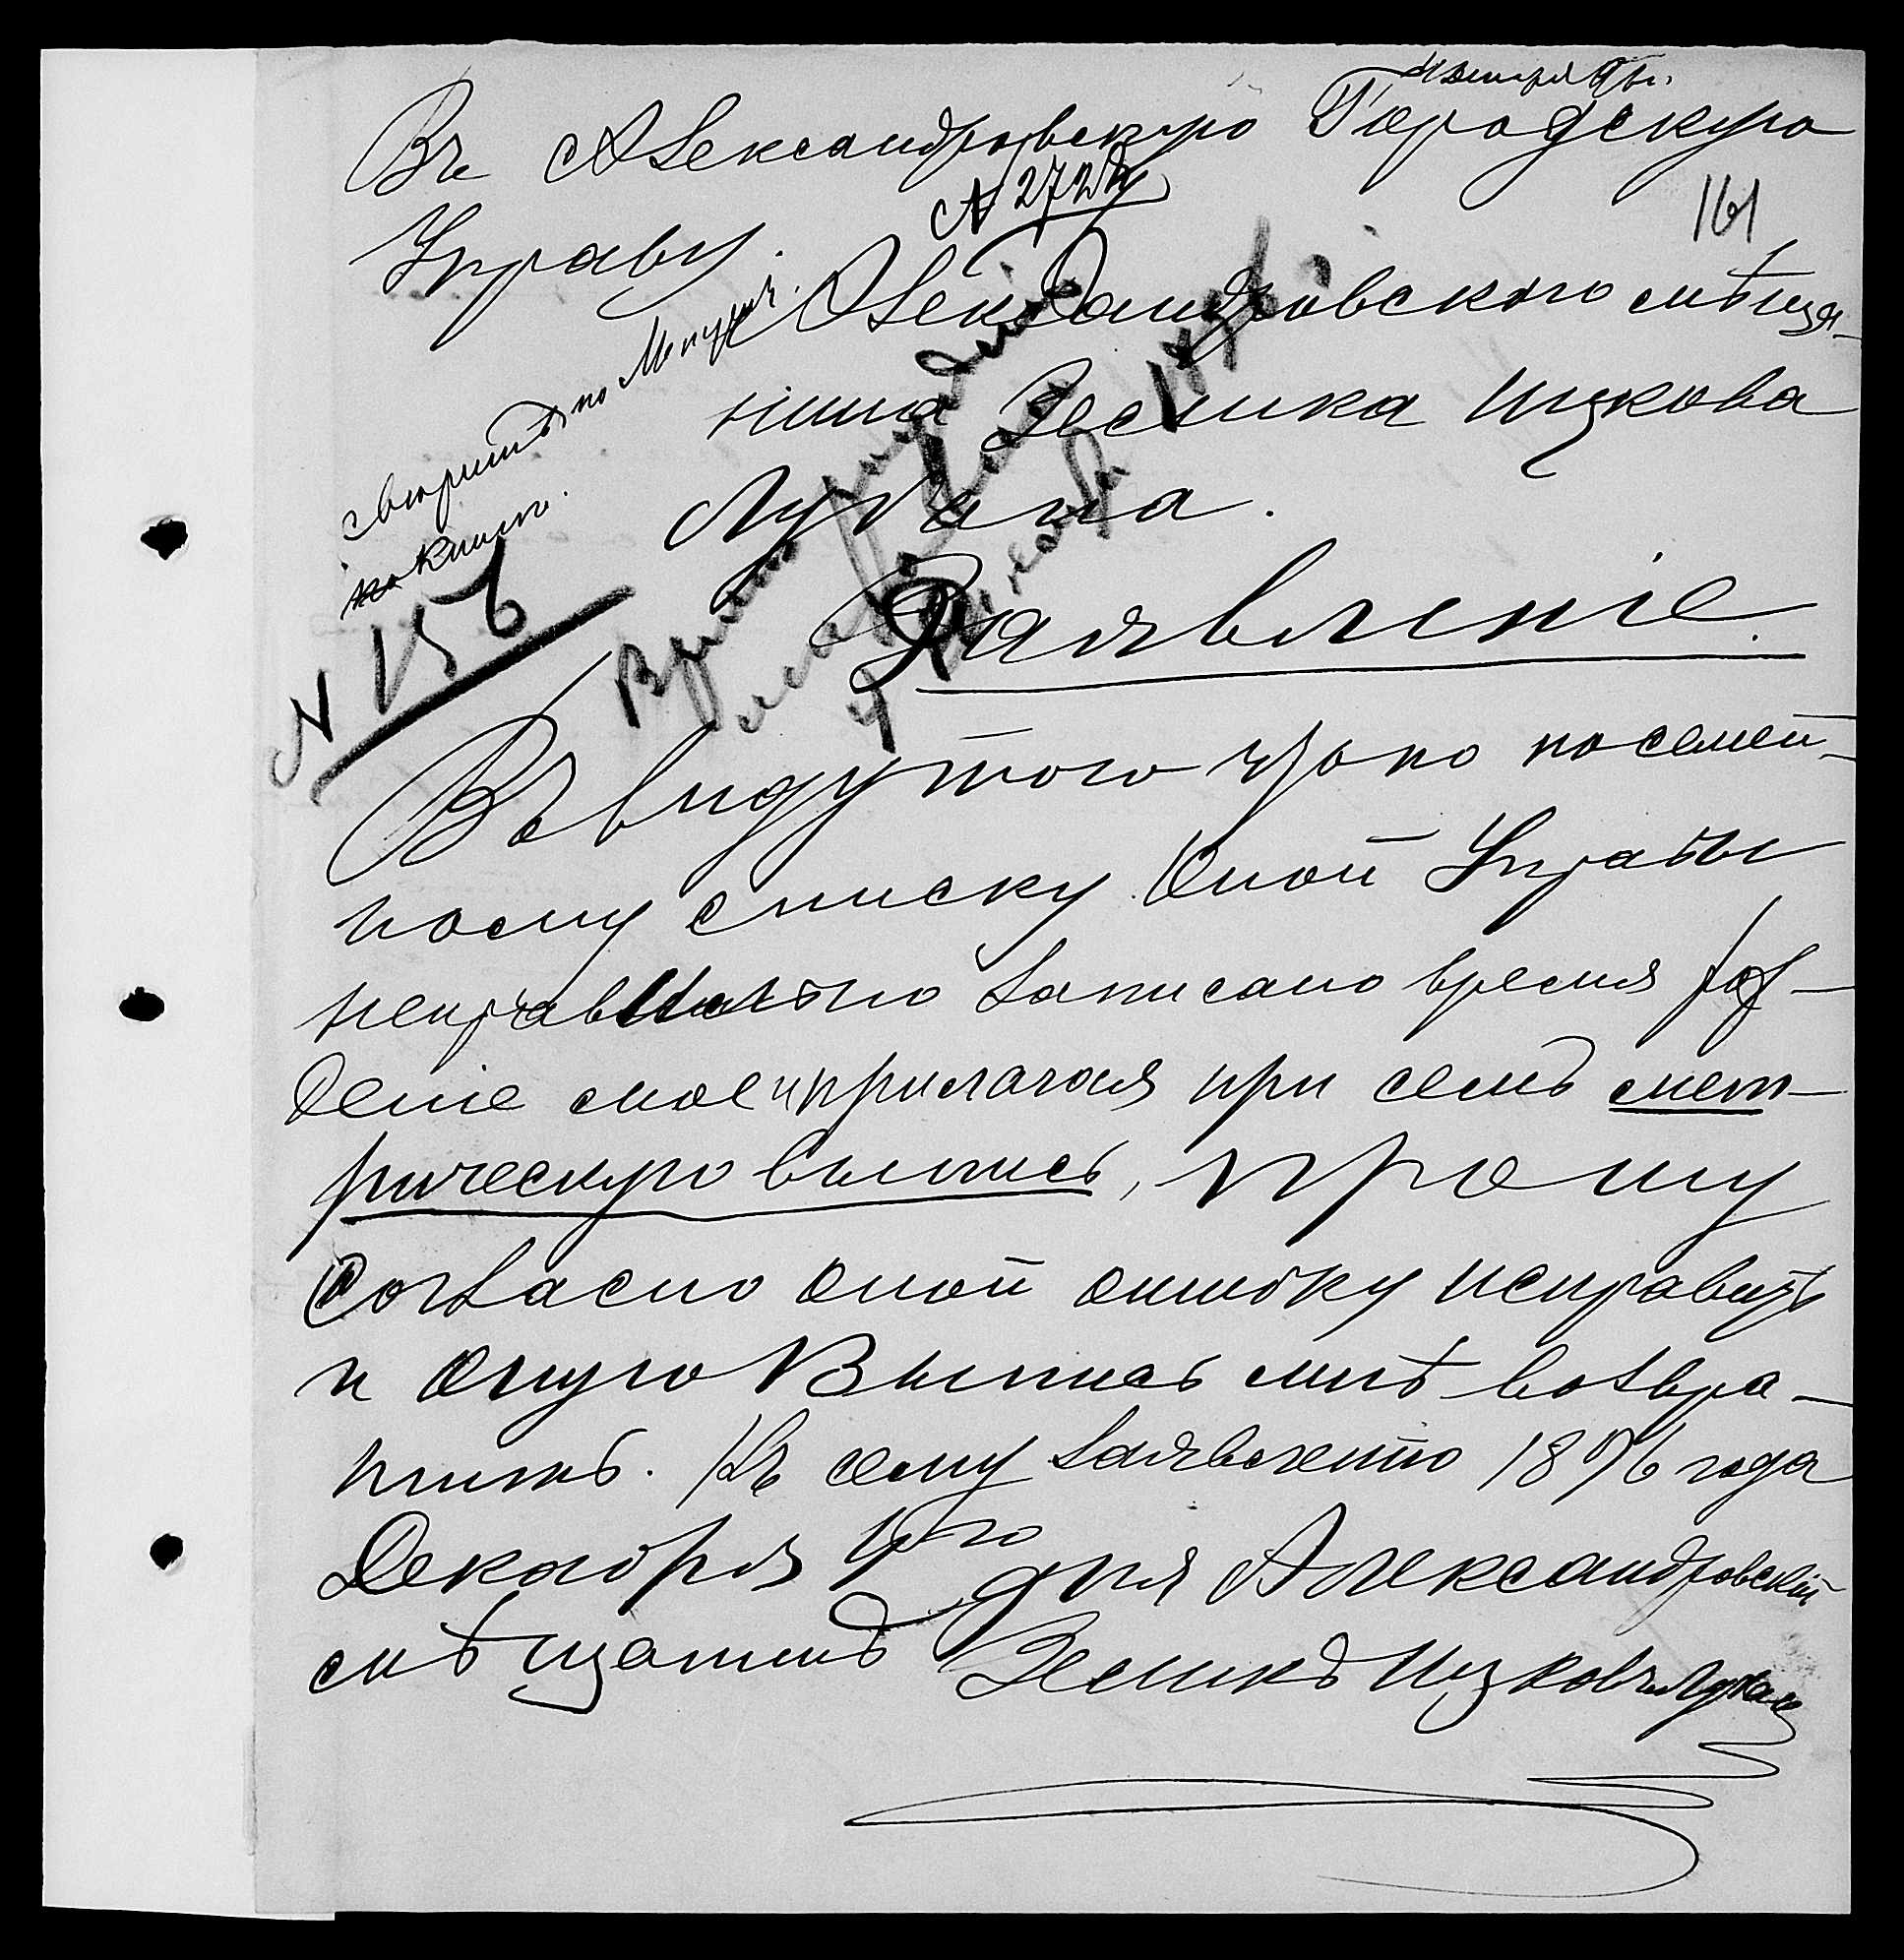 Въ Александровскую Городскую
№ 2728
161
Управу.
Александровского мѣща-
нина Зелика Ицкова
по
книгѣ.
№ 156
Заявленіе.
Въ виду того что по посемей-
ному списку оной Управы
неправильно записано время рож-
деніе мое и прилагая при семъ мет-
рическую выпись, прошу
Согласно оной ошибку исправить
и оную Выпись мнѣ возвра-
тить. Къ сему заявленію 1896 года
Декабря 4го дня Александровскій
мѣщанинъ Зеликъ Ицковъ